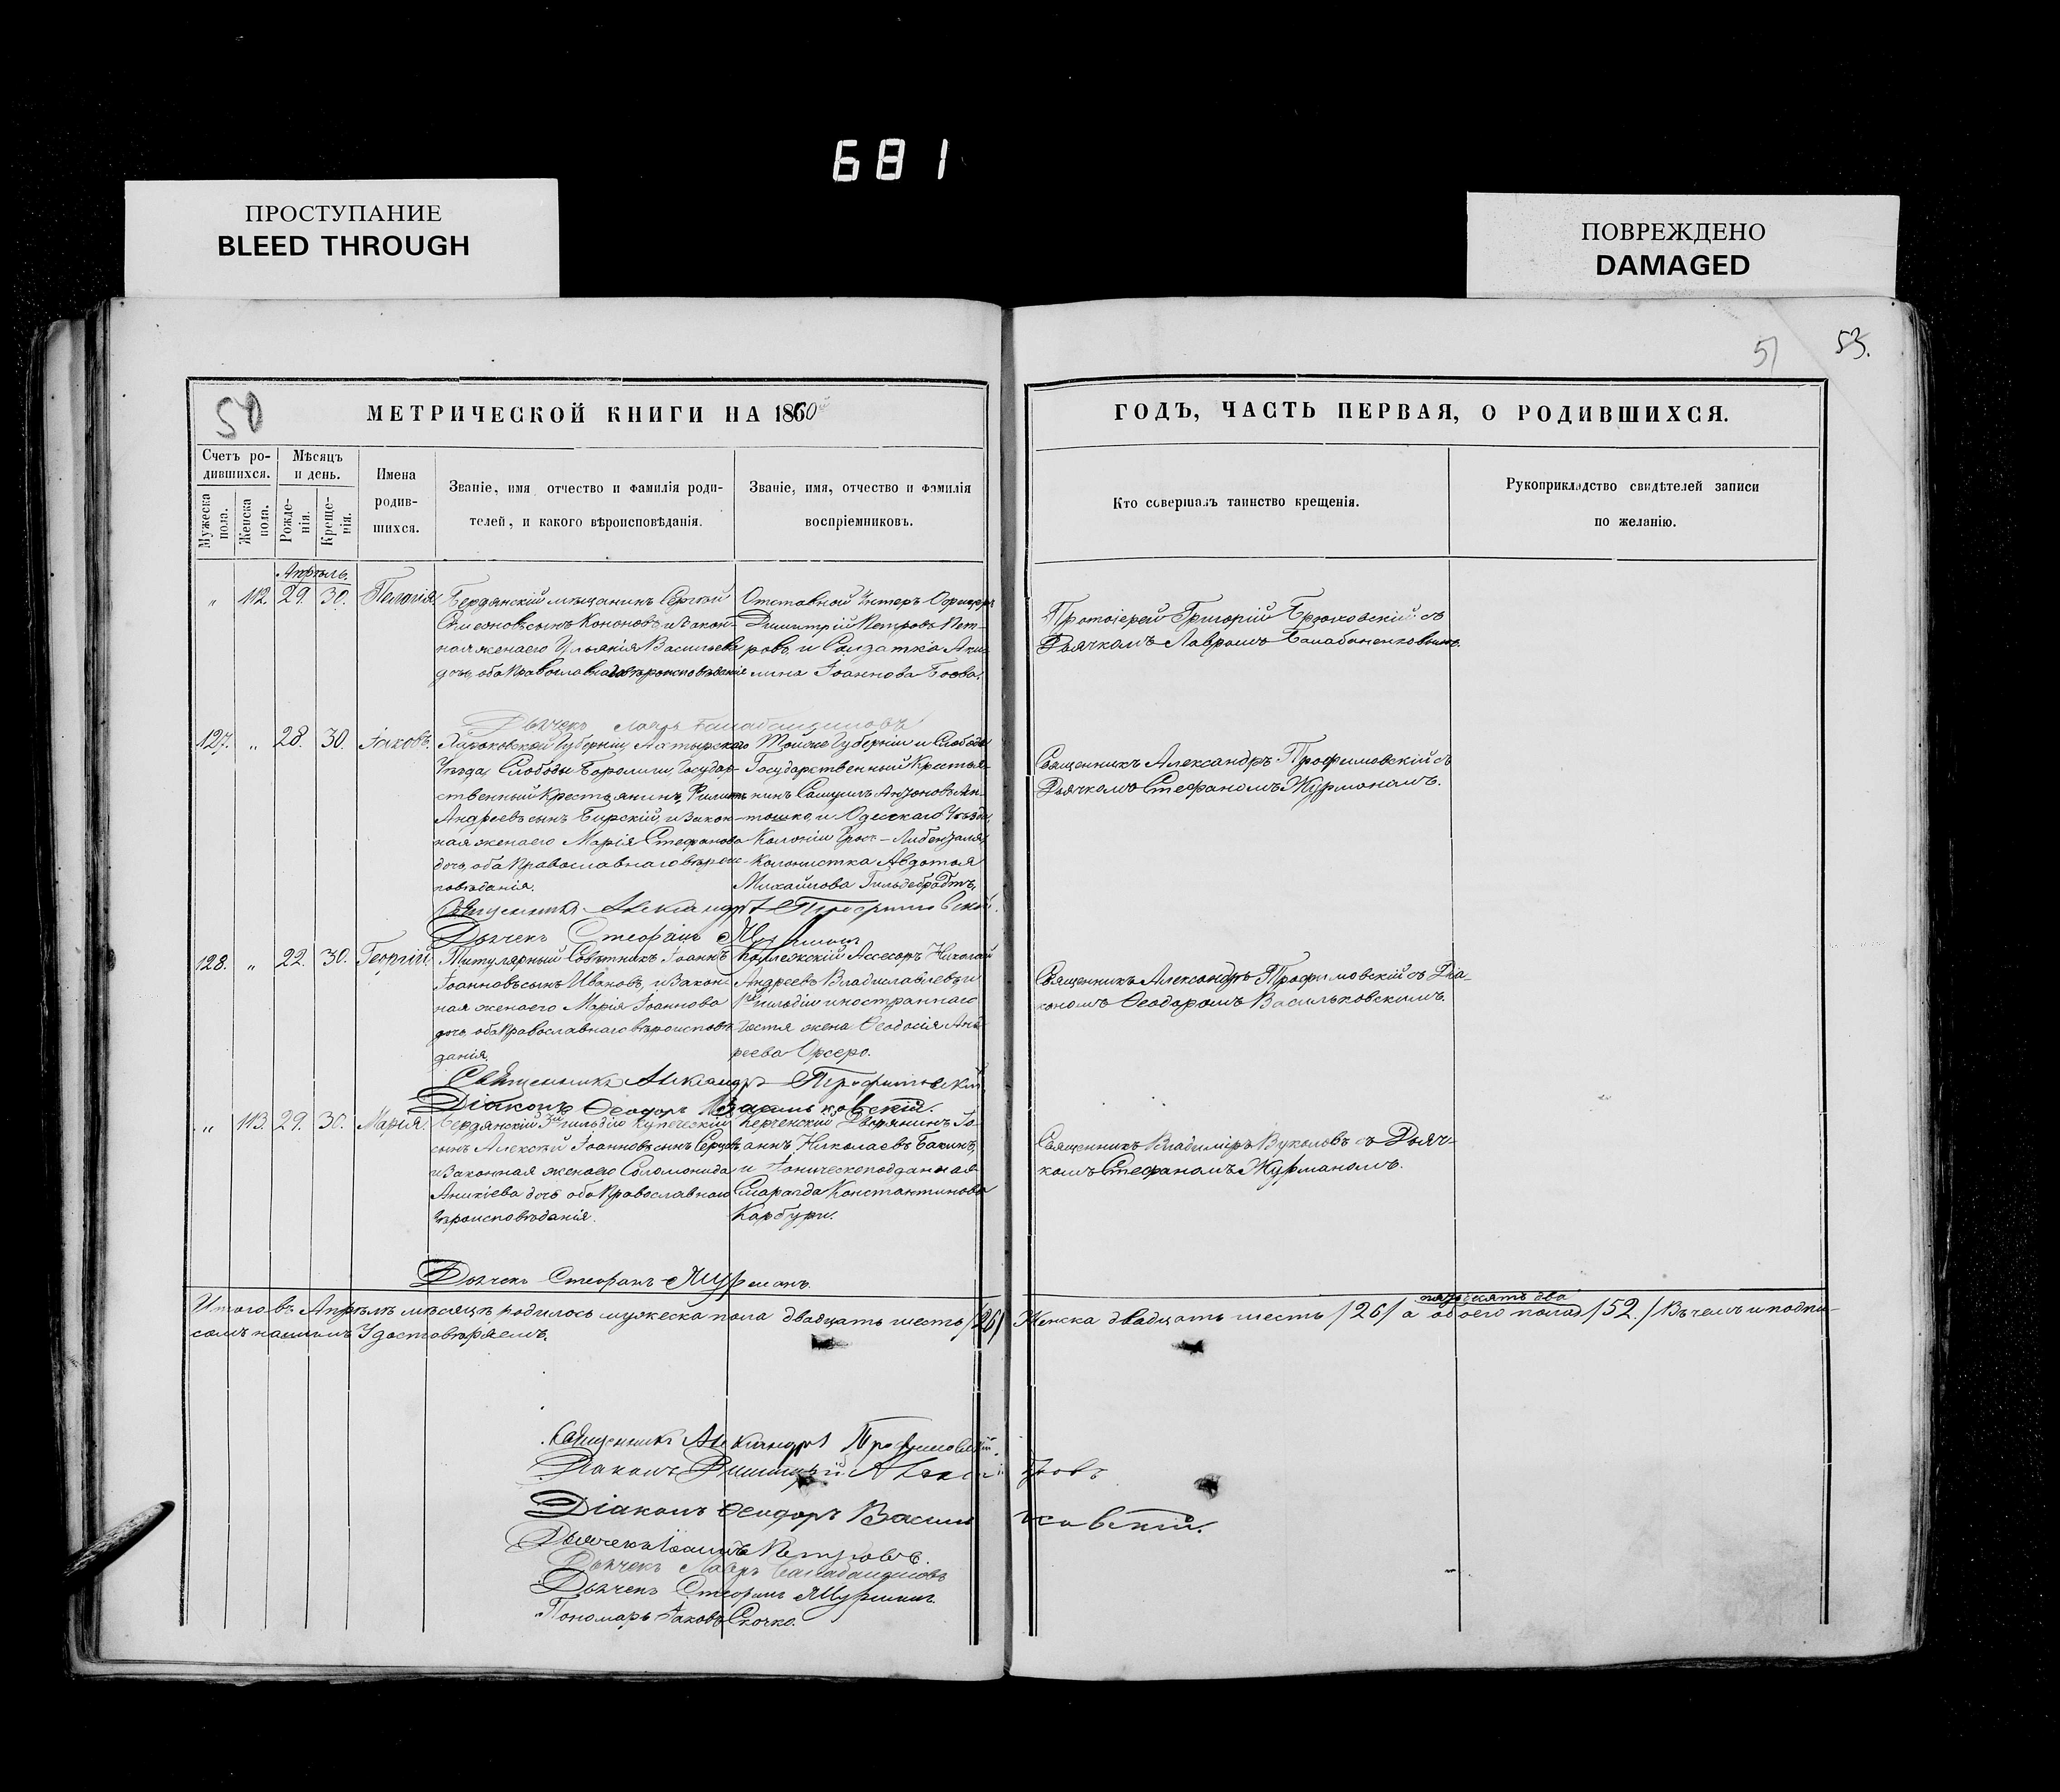 681
ПРОСТУПАНИЕ
BLEED THROUGH
ПОВРЕЖДЕНО
DAMAGED
51 53.
50
МЕТРИЧЕСКОЙ КНИГИ НА 1860
ГОДЪ, ЧАСТЬ ПЕРВАЯ, О РОДИВШИХСЯ.
Счетъ ро-
дившихся.
Мужеска пола.
Женска пола.
Мѣсяцъ
и день.
Рожде-
нія.
Креще-
нія.
Имена
родив-
шихся.
Званіе, имя отчество и фамилія роди-
телей, и какого вѣроисповѣданія.
Званіе, имя, отчество и фамилія
воспріемниковъ.
Кто совершалъ таинство крещенія.
Рукоприкладство свидѣтелей записи
по желанію.
Апрѣль.
" 112. 29. 30. Пелагія
Бердянскій мѣщанинъ Сергѣй
Симеоновъ сынъ Кононовъ и закон-
ная жена его Васильева
дочь, оба Православнаго вѣроисповѣданія
Отставной Унтеръ Офицеръ
Димитрій Петровъ Пет-
ровъ и Солдатка Аку-
лина Іоаннова Боева.
Протоіерей Григорій Брюховскій съ
Дьячкомъ Лавромъ
Дьячекъ Лавръ
127. " 28. 30. Іаковъ.
Харьковской Губерніи, Ахтырскаго
Уѣзда, Слободы Боромли, Государ-
ственный Крестьянинъ, Филиппъ
Андреевъ сынъ Бирскій, и закон-
ная жена его Марія Стефанова
дочь, оба Православнаго вѣроис-
повѣданія.
Тойже Губерніи и Слободы
Государственный Крестья-
нинъ Самуилъ Антоновъ Ан-
тошко, и Одесскаго Уѣзда,
Колоніи Грос-Либенталя,
Колонистка Авдотья
Михайлова
Священникъ Александръ Трофимовскій съ
Дьячкомъ Стефаномъ Журманомъ.
Священникъ Александръ Трофимовскій.
Дьячекъ Стефанъ Журманъ
128. " 22. 30. Георгій.
Титулярный Совѣтникъ Іоаннъ
Іоанновъ сынъ Ивановъ, и закон-
ная жена его Марія Іоаннова
дочь, оба Православнаго вѣроисповѣ-
данія.
Коллежскій Ассесоръ Николай
Андреевъ Владиславлевъ и
1й гильдіи иностраннаго
Гостя жена Ѳеодосія Анд-
реева Орсеро.
Священникъ Александръ Трофимовскій съ Діа-
кономъ Ѳеодоромъ Васильковскимъ.
Священникъ Александръ Трофимовскій
Діаконъ Ѳеодоръ Васильковскій.
" 113. 29. 30. Марія.
Бердянскій 3й гильдіи Купеческій
сынъ Алексѣй Іоанновъ сынъ
и Законная жена его Соломонида
Аникіева дочь оба Православнаго
Вѣроисповѣданія.
Керченскій Дворянинъ Іо-
аннъ Николаевъ Бакинъ,
и Іоническоподданная
Смарагда Константинова
Карбури.
Священникъ Владиміръ Вуколовъ съ Дьяч-
комъ Стефаномъ Журманомъ.
Дьячекъ Стефанъ Журманъ.
Итого въ Апрѣлѣ мѣсяцѣ родилось мужеска пола двадцать шесть /26/ Женска двадцать шесть /26/ а обоего пола пятьдесятъ два /52./ Въ чемъ и подпи-
сомъ нашимъ Удостовѣряемъ.
Священникъ Александръ Трофимовскій.
Діаконъ Димитрій
Діаконъ Ѳеодоръ Васильковскій.
Дьячекъ Іоаннъ Петровъ.
Дьячекъ Лавръ
Дьячекъ Стефанъ Журманъ
Пономарь Іаковъ Скочко.